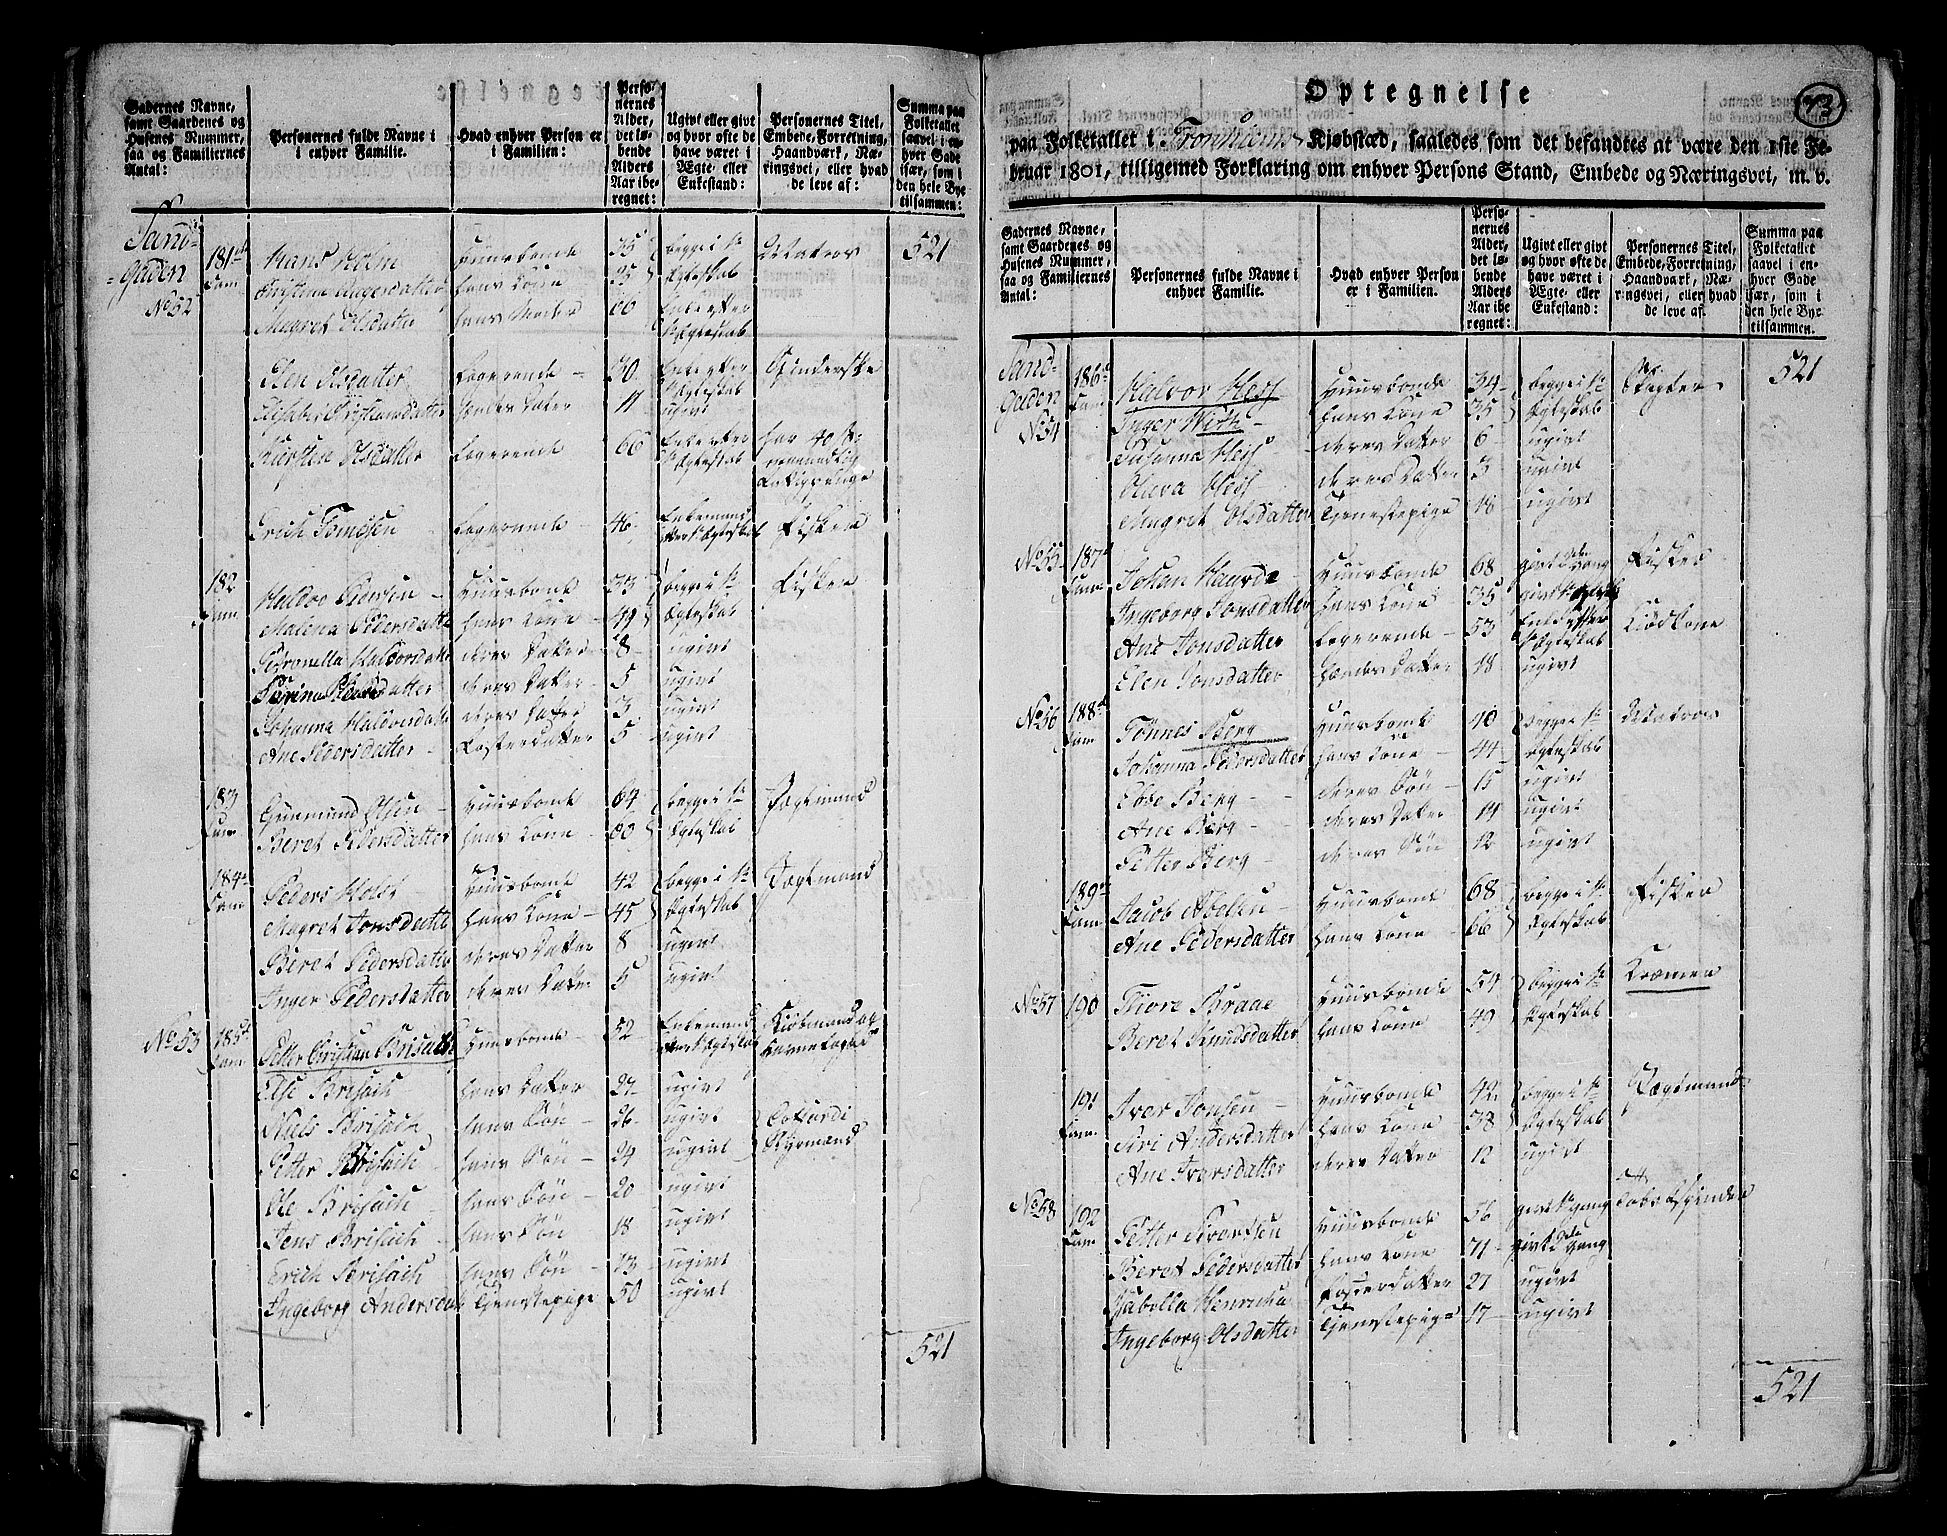 Gadernes Navne, samt Gaardenes og Husenes Nummer, saa og Familiernes Antal:
Personernes fulde Navne i enhver Familie.
Hvad enhver Person er i Familien:
Personernes Alder, det løbende Alders Aar iberegnet:
Ugivt eller givt og hvor ofte de have været i Ægte- eller Enkestand:
Personernes Titel, Embede, Forretning, Haandværk, Næringsvei, eller hvad de leve af:
Summa paa Folketallet saavel i enhver Gade især, som i den hele Bye tilsammen:
Sand-
gaden
No 52
181de Fam Hans Holm Huusbonde 35 begge i 1te Matros 521
hans Kone 35 Egteskab
Magret Olsdatter hans Moder 60 Enke efter 1te Egteskab
Elen Olsdatter Logerende 30 Enke efter 1te Egteskab Spinderske
hendes Datter 11 ugivt
Kirsten Olsdatter Logerende 66 Enke efter 1te Egteskab
Erich Tomesen Logerende 46 Enkemand Fisker
182 Fam Haldor Pedersen Huusbonde 33 begge i 1te Fisker
Malena Pedersdatter hans Kone 49 Egteskab
Petronella Haldorsdatter deres Datter 8 ugivt
deres Datter 5 ugivt
Johanna Haldorsdatter deres Datter 3 ugivt
Ane Pedersdatter Fosterdatter 5 ugivt
183 Fam Gunmund Olsen Huusbonde 64 begge i 1te Vægtmand
Beret Pedersdatter hans Kone 60 Egteskab
184de Fam Peders Holst Huusbonde 42 begge i 1te Vægtmand
Magret Jonsdatter hans Kone 45 Egteskab
Beret Pedersdatter deres Datter 8 ugivt
Inger Pedersdatter deres Datter 5 ugivt
No 53 185de Fam Petter Cristian Brisach Huusbonde 52 Enkemand Kiøbmand og
Else Brisach hans Datter 27 ugivt
Niels Brisach hans Søn 26 ugivt
Petter Brisach hans Søn 24 ugivt Styrmand
Ole Brisach hans Søn 20 ugivt
Jens Brisach hans Søn 18 ugivt
Erich Brisach hans Søn 13 ugivt
Ingeborg Andersdatr Tjenestepige 50 ugivt
521
73
Optegnelse
paa Folketallet i Tronhiems Kiøbstæd, saaledes som det befandtes at være den 1ste Februar 1801, tilligemed Forklaring om enhver Persons Stand, Embede og Næringsvei, m. v.
Gadernes Navne, samt Gaardenes og Husenes Nummer, saa og Familiernes Antal:
Personernes fulde Navne i enhver Familie.
Hvad enhver Person er i Familien.
Personernes Alder, det løbende Alders Aar iberegnet:
Ugivt eller givt og hvor ofte de have været i Ægte- eller Enkestand:
Personernes Titel, Embede, Forretning, Haandværk, Næringsvei, eller hvad de leve af.
Summa paa Folketallet saavel i enhver Gade især, som i den hele Bye tilsammen.
Sand-
gaden
No 54
186de Fam Halvor Hess Huusbonde 34 begge i 1te 521
Inger Wirth hans Kone 35 Egteskab
Susanna Hess deres Datter 6 ugivt
Hess deres Datter 3 ugivt
Magret Olsdatter Tjenestepige 18 ugivt
No 55 187de Fam Johan Huusbonde 68 givt 2den Gang Fisker
Ingeborg Jonsdatter hans Kone 35
Ane Jonsdatter Logerende 53 Enke efter 1te Egteskab Kiødkone
Elen Jonsdatter hendes Datter 18 ugivt
No 56 188de Fam Tønnes Berg Huusbonde 40 begge i 1te Matros
Johanna Pedersdatter hans Kone 44 Egteskab
Ebbe Berg deres Søn 15 ugivt
Ane Berg deres Datter 14 ugivt
Petter Berg deres Søn 12 ugivt
189de Fam Jacob Abelsen Huusbonde 68 begge i 1te Fisker
Ane Pedersdatter hans Kone 66 Egteskab
No 57 190 Tore Braae Huusbonde 54 begge i 1te Kræmer
Beret Knudsdatter hans Kone 49 Egteskab
191 Fam. Iver Jonsen Huusbonde 42 begge i 1te Vægtmand
Siri Andersdatter hans Kone 38 Egteskab
Ane Iversdatter deres Datter 12 ugivt
No 58 192 Fam Petter Huusbonde 56 givt 1te gang Tobakspinder
Beret Pedersdatter hans Kone 71 givt 2den gang
Isabella Henricha Fosterdatter 21 ugivt
Ingeborg Olsdatter Tjenestepige 17 ugivt
521